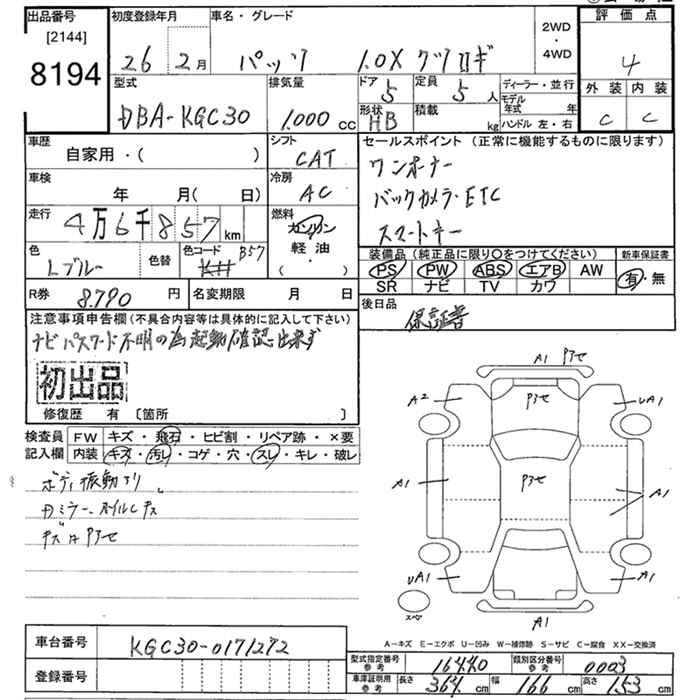 出品番号
[2144]
8194
初度登録年月
26 2月
車名・グレード
パッソ 1.0X クツロギ
2WD
・
4WD
評価点
4
外装 内装
C C
型式
DBA-KGC30
排気量
1.000 cc
ドア 5
定員 5 人
形状 HB
積載 kg
ディーラー・並行
モデル年式 年
ハンドル 左・右
車歴
自家用・( )
シフト
CAT
セールスポイント (正常に機能するものに限ります)
ワンオーナー
バックカメラ・ETC
スマートキー
車検
年 月( 日)
冷房
AC
走行
4万6千857km
燃料
ガソリン
軽油
・( )
色
Lブルー
色替
色コード B57
装備品 (純正品に限り〇をつけてください)
新車保証書
PS PW ABS エアB AW
SR ナビ TV カワ
有・無
R券 8.790 円
名変期限 月 日
後日品
保証書
注意事項申告欄 (不具合内容等は具体的に記入して下さい)
ナビパスワード不明の為起動確認出来ず
初出品
修復歴 有 〔箇所 〕
検査員記入欄
FW キズ・飛石・ヒビ割・リペア跡・×要
内装 キズ・汚れ・コゲ・穴・スレ・キレ・破レ
ボディ振動有り
Dミラー、ホイルCキズ
キズはアヲセ
A1 アヲセ
A2 アヲセ UA1
A1 アヲセ A1
UA1 A1
スペア
A1
A－キズ E－エクボ U－凹み W－補修跡 S－サビ C－腐食 XX－交換済
車台番号 KGC30-0171272
登録番号
型式指定番号 参考 16440
類別区分番号 参考 0003
車庫証明用 参考 長さ 364 cm 幅 166 cm 高さ 153 cm